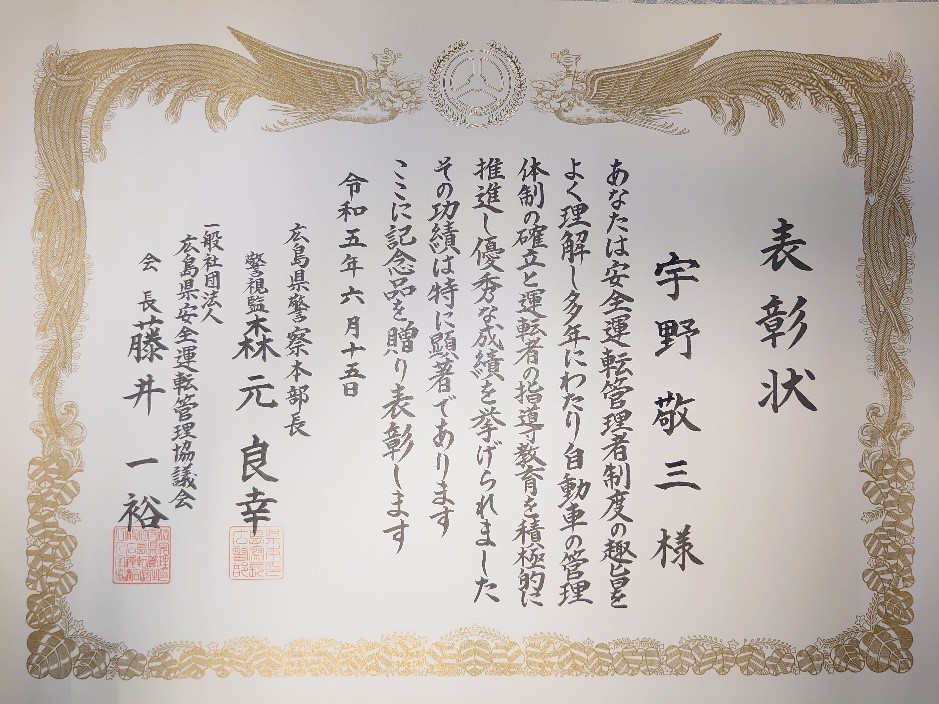 表彰状
宇野敬三様
あなたは安全運転管理者制度の趣旨を
よく理解し多年にわたり自動車の管理
体制の確立と運転者の指導教育を積極的に
推進し優秀な成績を挙げられました
その功績は特に顕著であります
ここに記念品を贈り表彰します
令和五年六月十五日
広島県警察本部長
警視監 森元良幸
一般社団法人
広島県安全運転管理協議会
会長 藤井一裕